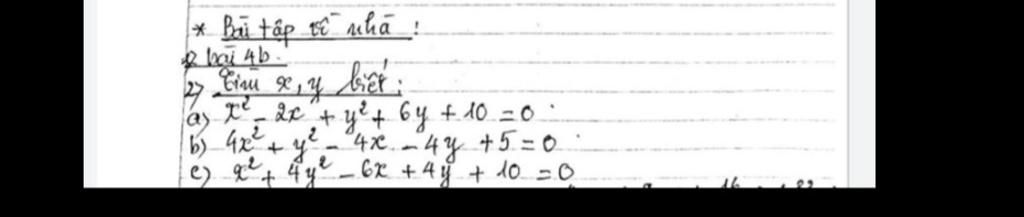 * Bài tập về nhà :
bài 4b.
2) Tìm x, y biết :
a) x² - 2x + y² + 6y + 10 = 0
b) 4x² + y² - 4x - 4y + 5 = 0
c) x² + 4y² - 6x + 4y + 10 = 0